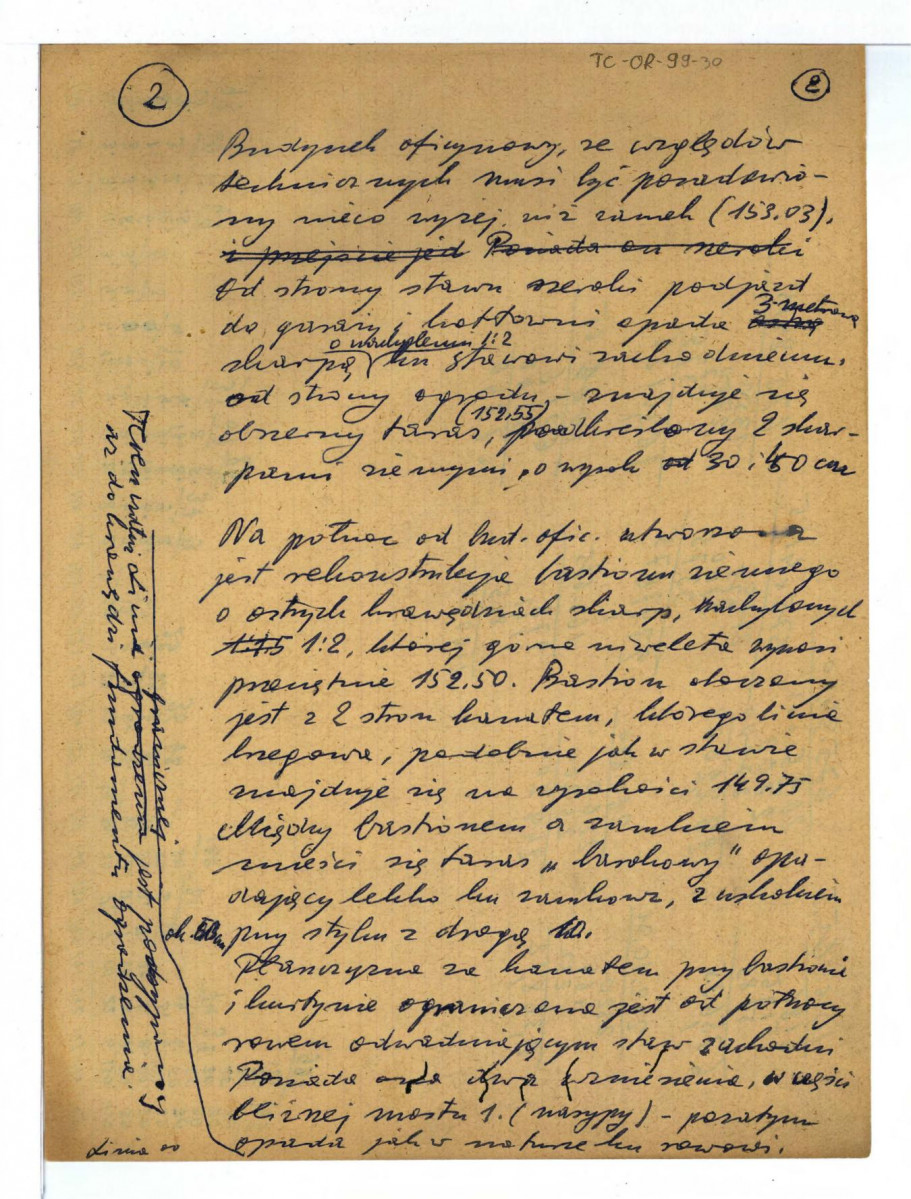 TC-OR-99-30
2
2
Budynek oficynowy, ze względów
technicznych musi być posadowio-
ny nieco wyżej niż zamek (153.03).
i przejście jed Posiada on szeroki
Od strony stawu szeroki podjazd
do garaży i kotłowni oparta 3-metrową
skarpą, o nachyleniu 1:2 ku stawowi zachodniemu.
od strony ogrodu, – znajduje się
obszerny taras, (152.55) podkreślony 2 skar-
pami ziemnymi, o wysok od 30 i 40 cm
Na północ od bud. ofic. utworzona
jest rekonstrukcja bastionu ziemnego
o ostrych krawędziach skarp, nachylonych
1:2, której górna niweleta wynosi
przeciętnie 152.50. Bastion otoczony
jest z 2 stron kanałem, którego linia
brzegowa, podobnie jak w stawie
znajduje się na wysokości 149.75
Między bastionem a zamkiem
mieści się taras „barokowy" opa-
dający lekko ku zamkowi, z uskokiem
przy styku z drogą
Płaszczyzna za kanałem przy bastionie
i kurtynie ograniczona jest od północy
rowem odwadniającym staw zachodni
Posiada ona dwa wzniesienia, w części
bliższej mostu 1. (nasypy) – pozatym
opada jak w naturze ku rowowi.
Teren wzdłuż linii ogrodzenia granicznej jest podsypany
aż do krawędzi fundamentu ogrodzenia.
ok.
Linia